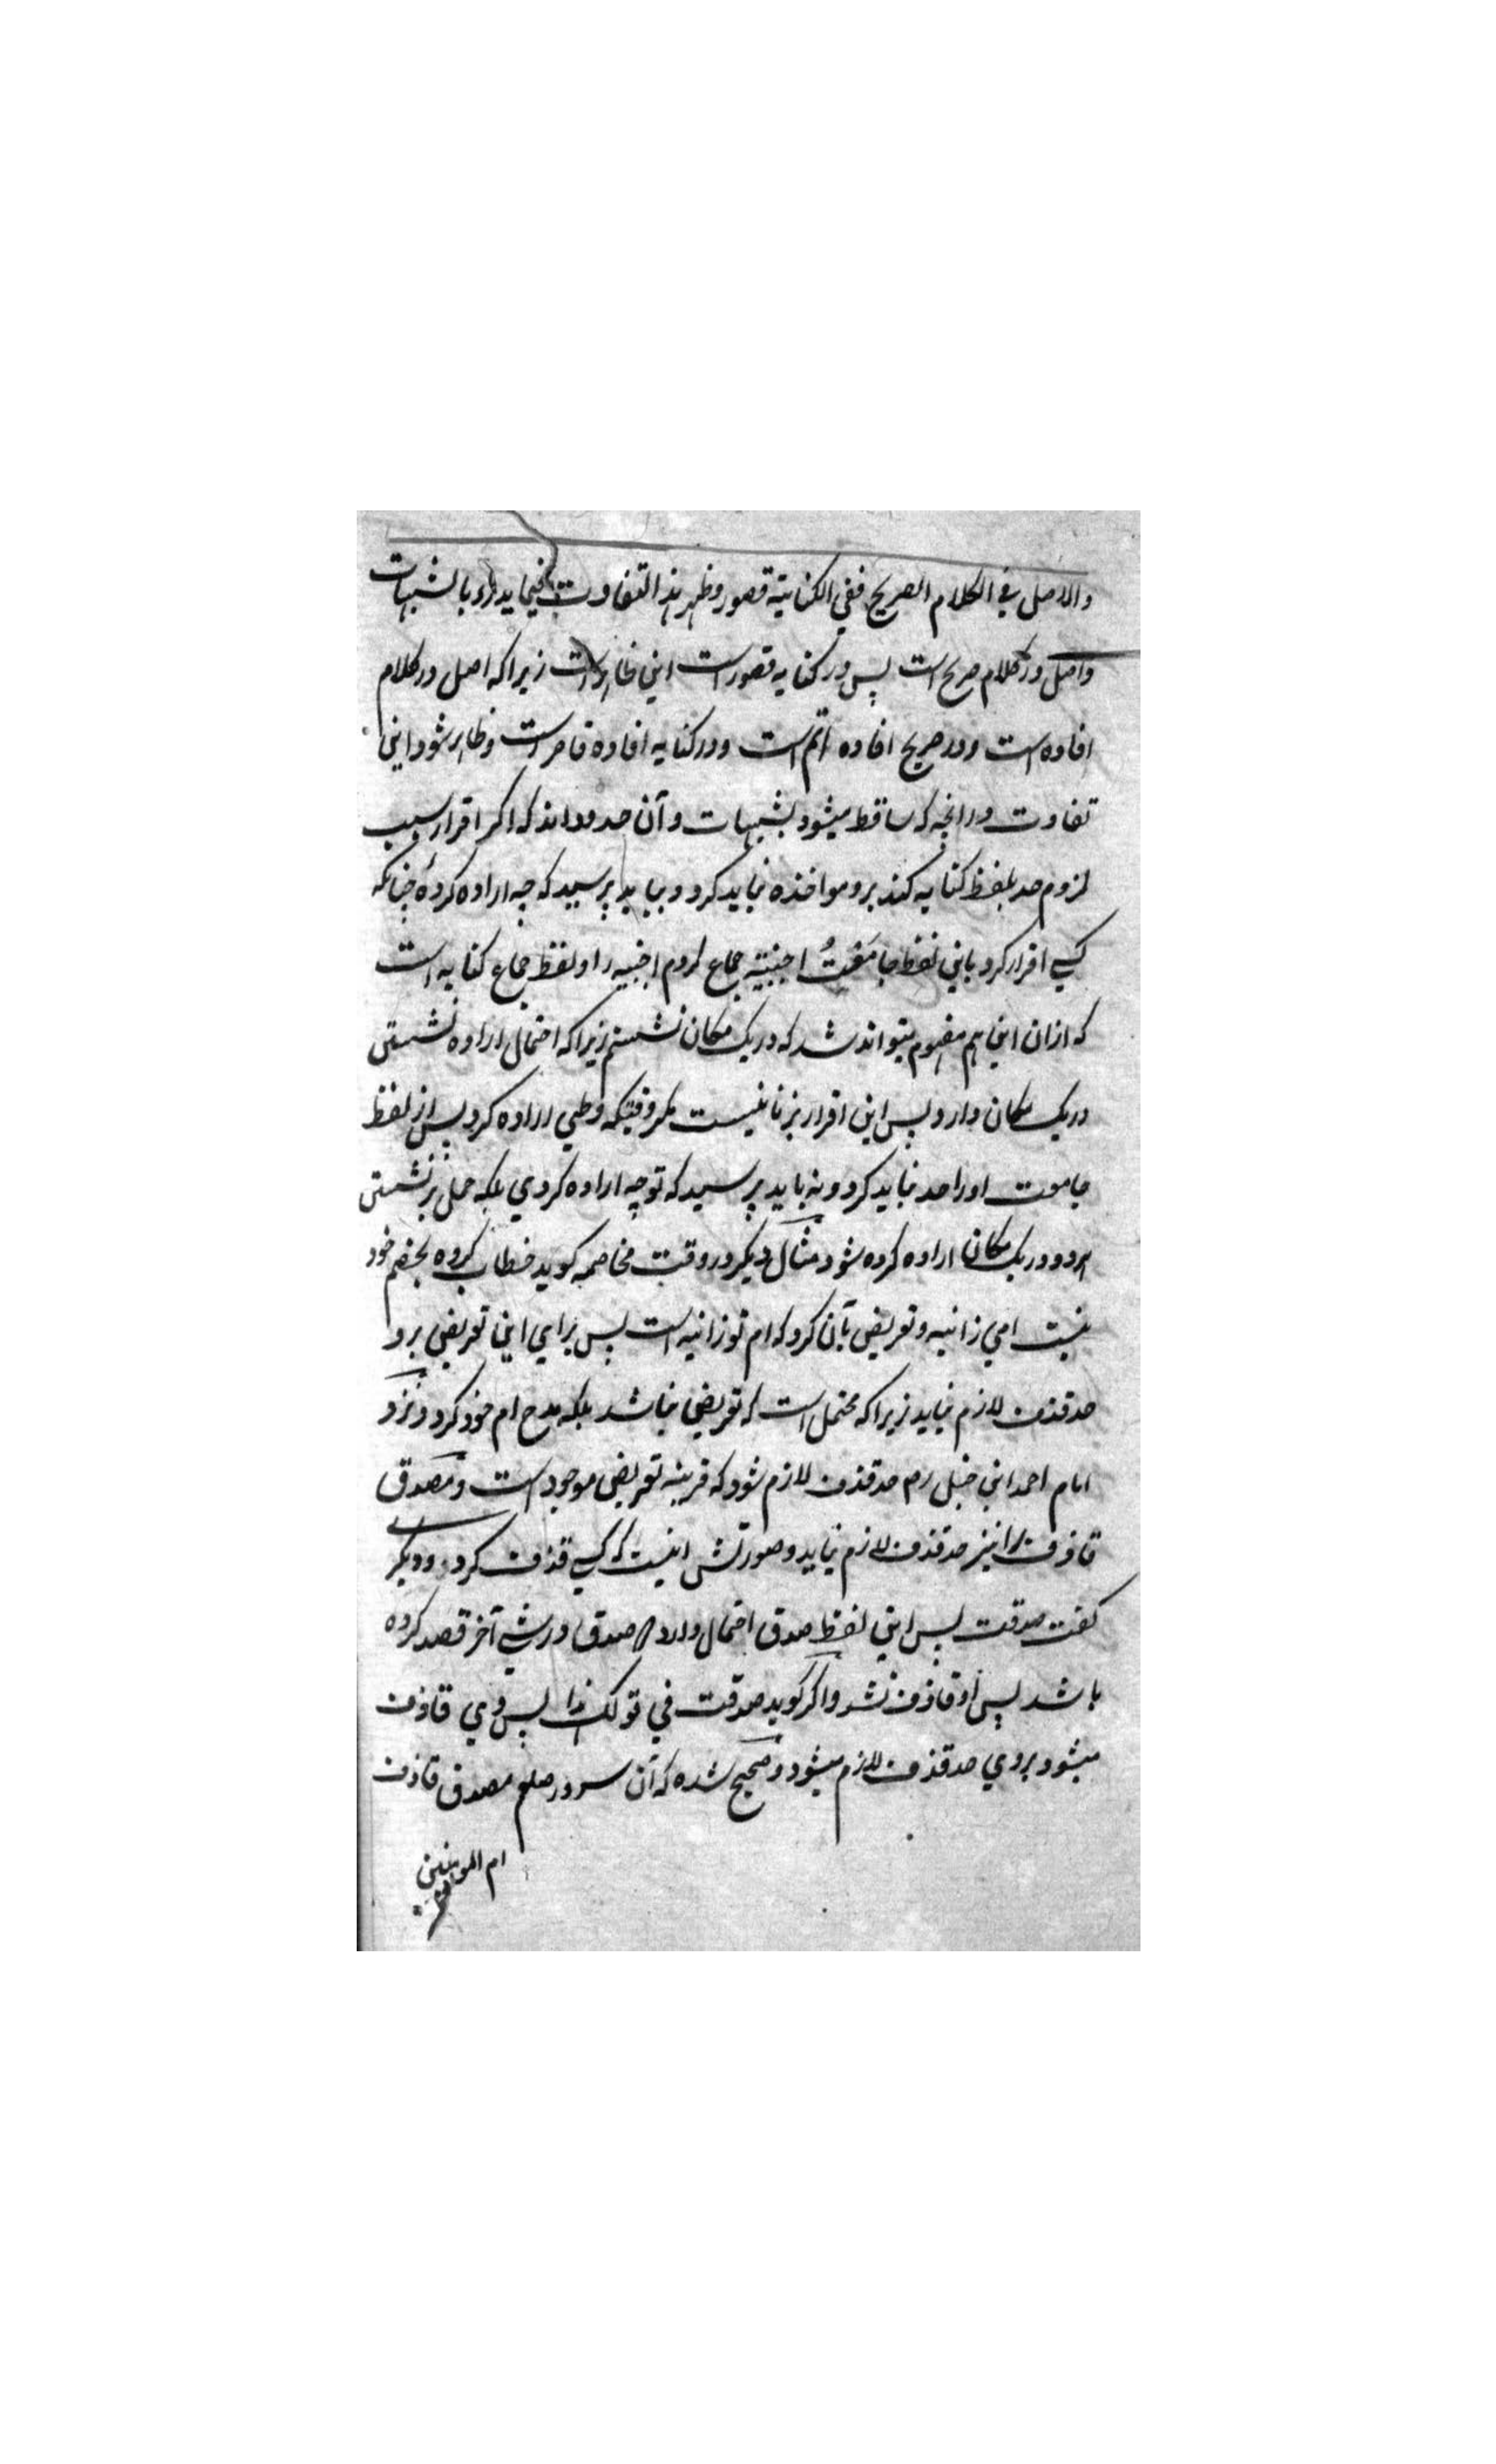 والاصل في الكلام الصريح ففي الكناية قصور وظهر هذا التفاوت فيما يدرأ بالشبهات
واصل در كلام صريح است پس در كنايه قصور است اين ظاهر است زيرا كه اصل در كلام
افاده است ودر صريح افاده اتم است ودر كنايه افاده قاصر است وظاهر شود اين
تفاوت در انچه كه ساقط ميشود بشبهات وآن حدود اند كه اكر اقرار بسبب
لزوم حد بلفظ كنايه كند برو مواخذه نبايد كرد و نبايد پرسيد كه چه اراده كردهٔ چنانكه
كسي اقرار كرد باين لفظ جامَعْتُ اجنبية جماع كردم اجنبيه را ولفظ جماع كنايه است
كه ازان اين هم مفهوم ميتواند شد كه در يك مكان نشستم زيرا كه احتمال اراده نشستن
در يك مكان دارد پس اين اقرار بزنا نيست مكر وقتيكه وطي اراده كرد پس از لفظ
جامعت او را حد نبايد كرد و نه بايد پرسيد كه تو چه اراده كردي بلكه حمل بر نشستن
هردو در يك مكان اراده كرده شود مثال ديكر در وقت مخاصمه كويد خطاب كرده بخصم خود
نيست امي زانيه وتعريض بآن كرد كه ام تو زانيه است پس براي اين تعريض برو
حد قذف لازم نيايد زيرا كه محتمل است كه تعريض نباشد بلكه مدح ام خود كرد ونزد
امام احمد ابن حنبل رح حد قذف لازم شود كه قرينه تعريض موجود است ومصدق
قاذف را نيز حد قذف لازم نيايد وصورتش اينست كه كسي قذف كرد وديكر
كفت صدقت پس اين لفظ صدق احتمال دارد كه صدق در شي آخر قصد كرده
باشد پس او قاذف نشد واكر كويد صدقت في قولك هذا پس وي قاذف
ميشود بروي حد قذف لازم ميشود وصحيح شده كه آن سرور صلعم مصدق قاذف
ام المومنين